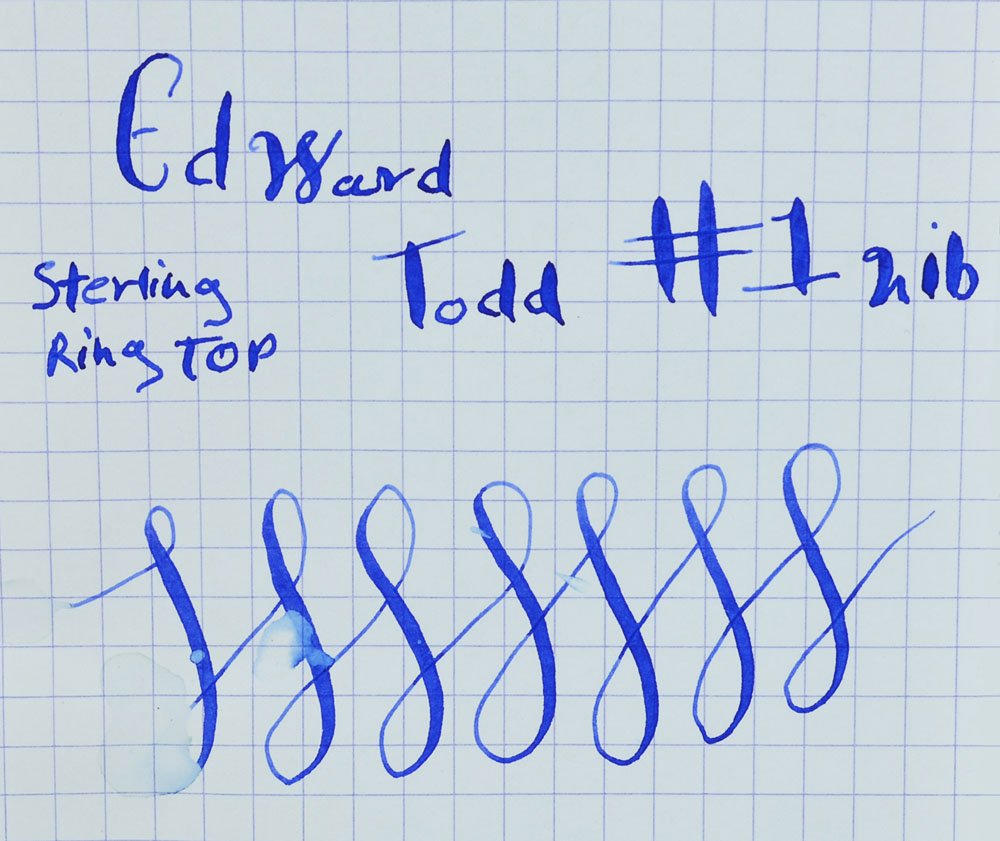 Edward
Todd #1 nib
Sterling
Ring TOP